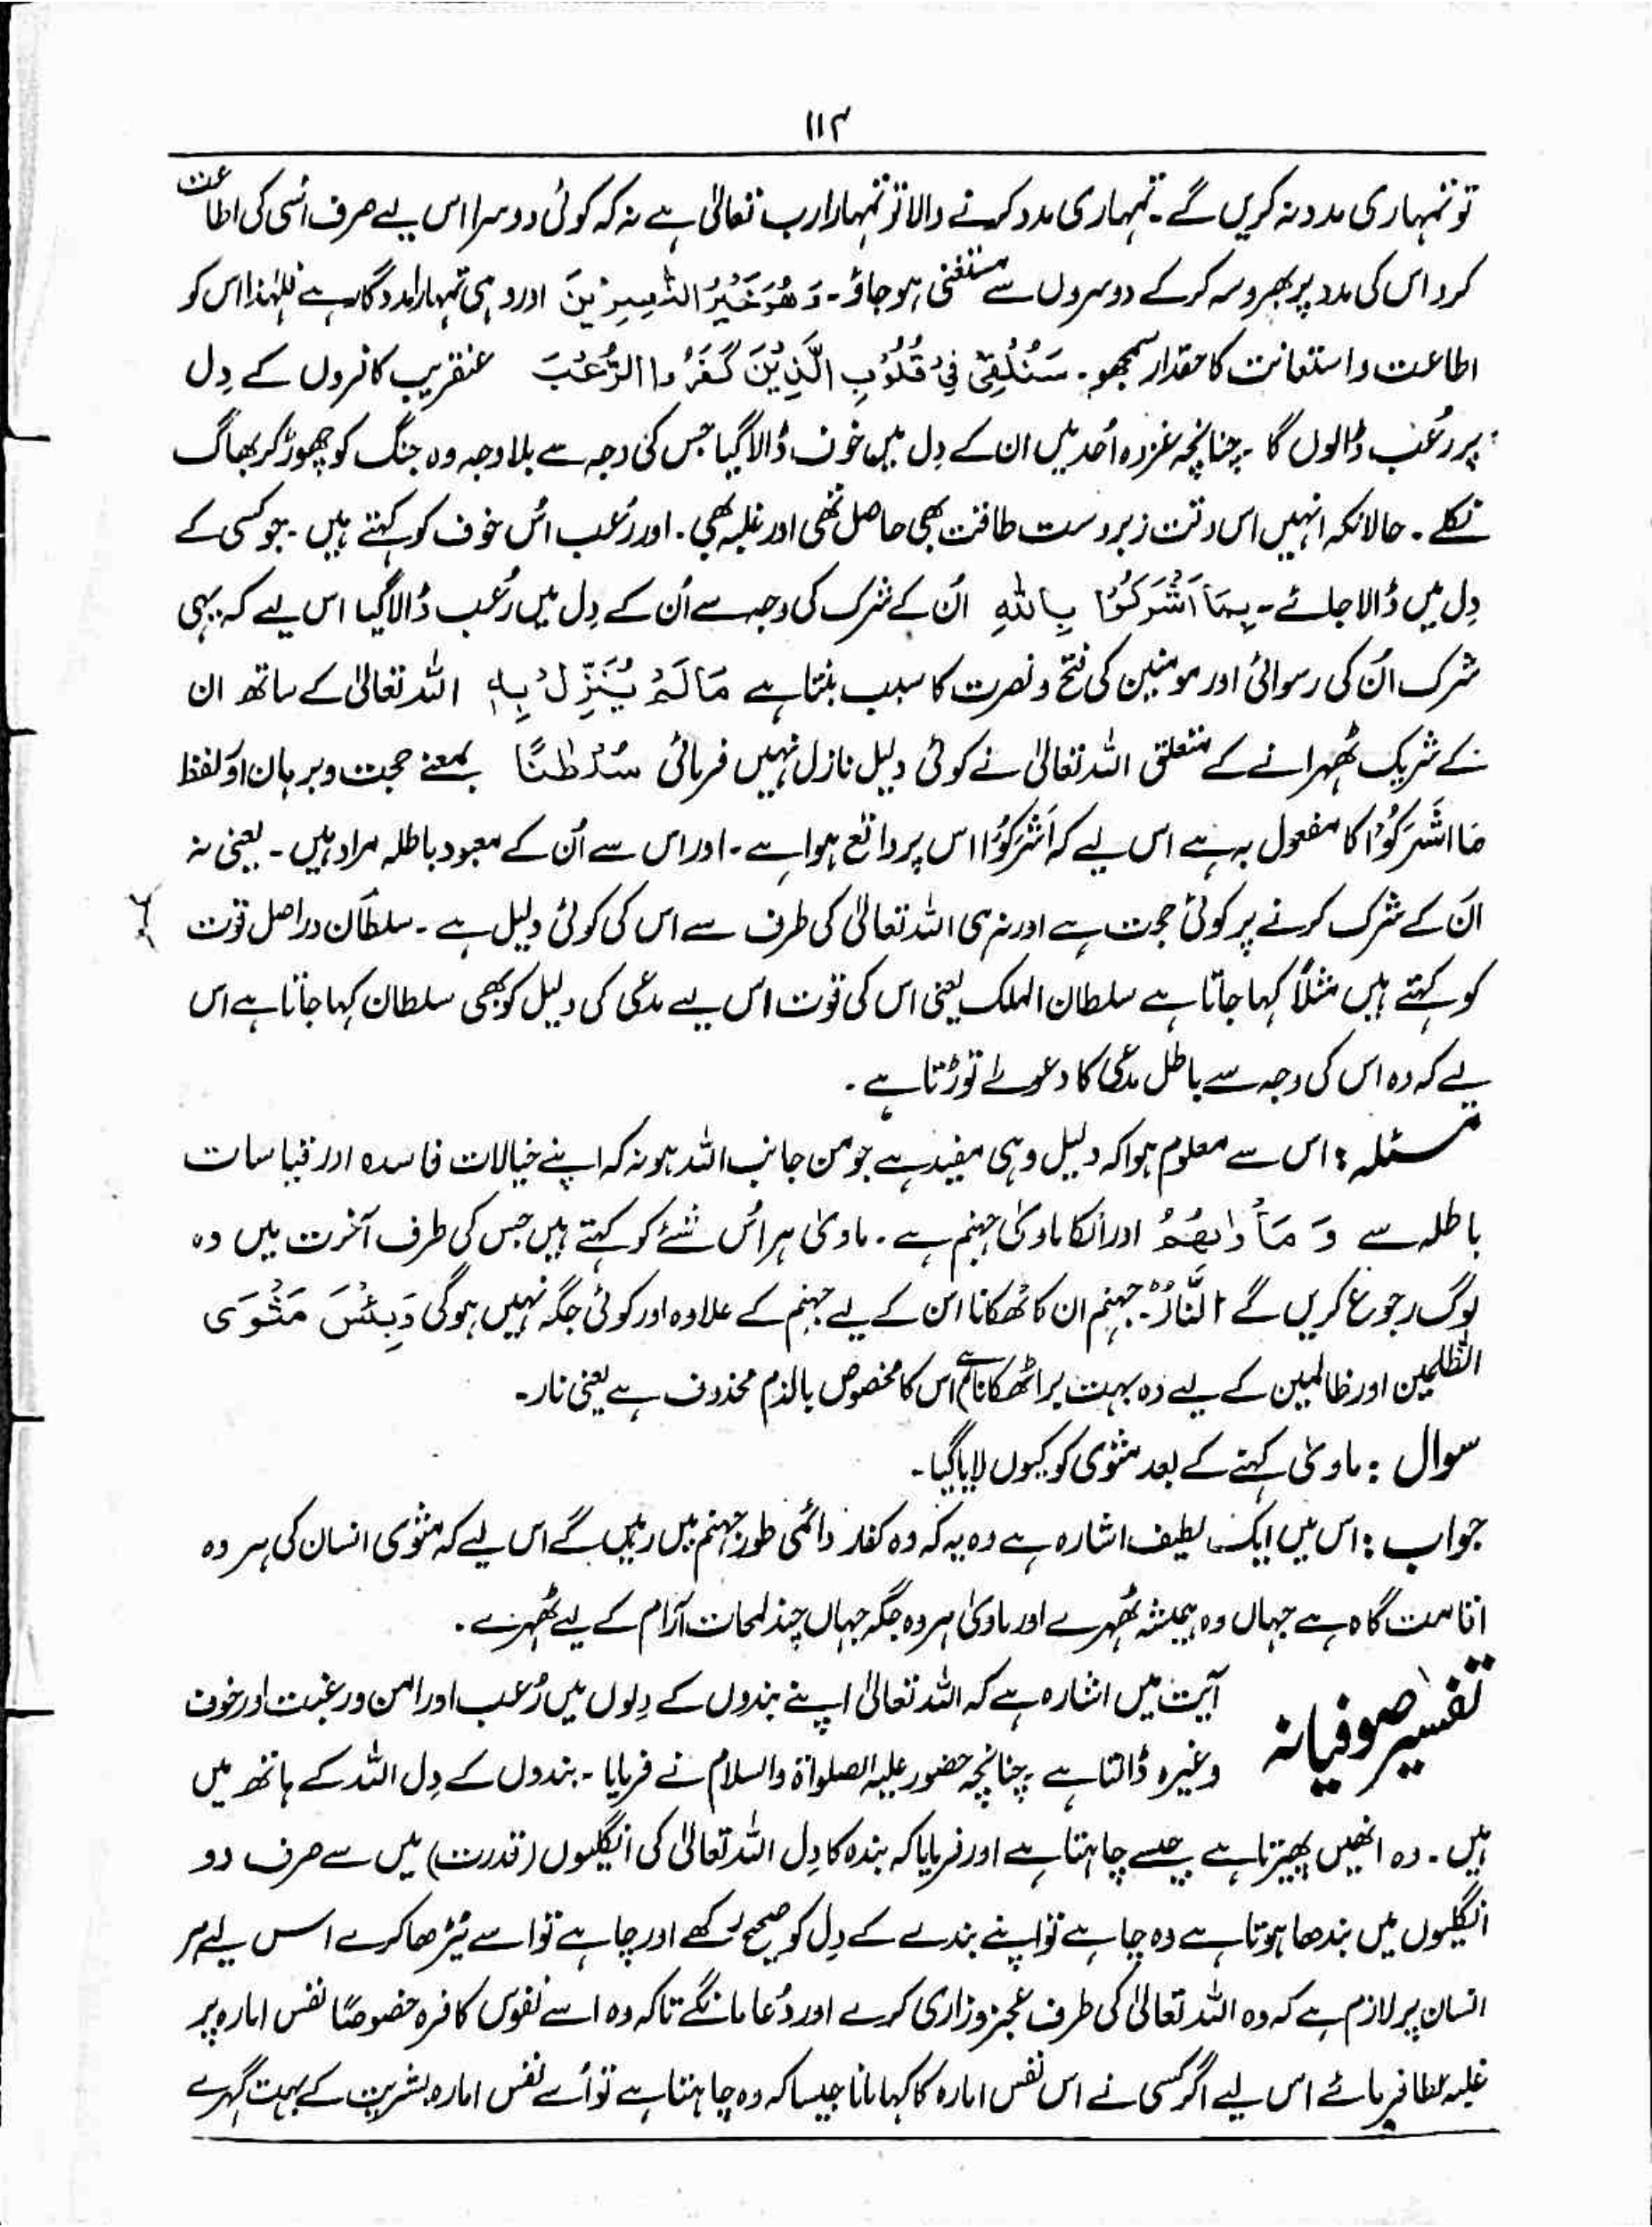 ۱۱۴
تو تمہاری مدد نہ کریں گے۔ تمہاری مدد کرنے والا تو تمہارا رب تعالیٰ ہے نہ کہ کوئی دوسرا اس لیے صرف اُسی کی اطاعت
کرو اس کی مدد پر بھروسہ کرکے دوسروں سے مستغنی ہو جاؤ۔ وَهُوَ خَيْرُ النّٰصِرِيْنَ اور وہی تمہارا مددگار ہے لہٰذا اس کو
اطاعت و استعانت کا حقدار سمجھو۔ سَنُلْقِيْ فِيْ قُلُوْبِ الَّذِيْنَ كَفَرُوا الرُّعْبَ عنقریب کافروں کے دِل
پر رُعب ڈالوں گا چنانچہ غزوہ اُحد میں ان کے دِل میں خوف ڈالا گیا جس کی وجہ سے بلا وجہ وہ جنگ کو چھوڑ کر بھاگ
نکلے۔ حالانکہ انہیں اس وقت زبردست طاقت بھی حاصل تھی اور غلبہ بھی۔ اور رُعب اُس خوف کو کہتے ہیں۔ جو کسی کے
دِل میں ڈالا جائے۔ بِمَآ اَشْرَكُوْا بِاللّٰهِ اُن کے شرک کی وجہ سے اُن کے دِل میں رُعب ڈالا گیا اس لیے کہ یہی
شرک اُن کی رسوائی اور مومنین کی فتح و نصرت کا سبب بنتا ہے مَا لَمْ يُنَزِّلْ بِهٖ اللہ تعالیٰ کے ساتھ ان
کے شریک ٹھہرانے کے متعلق اللہ تعالیٰ نے کوئی دلیل نازل نہیں فرمائی سُلْطٰنًا بمعنے حجت و برہان اور لفظ
مَا اَشْرَكُوْا کا مفعول بہ ہے اس لیے کہ اَشْرَكُوْا اس پر واقع ہوا ہے۔ اور اس سے اُن کے معبود باطلہ مراد ہیں۔ یعنی نہ
اُن کے شرک کرنے پر کوئی حجت ہے اور نہ ہی اللہ تعالیٰ کی طرف سے اس کی کوئی دلیل ہے۔ سلطان دراصل قوت
کو کہتے ہیں مثلاً کہا جاتا ہے سلطان الملک یعنی اس کی قوت اس لیے مدعی کی دلیل کو بھی سلطان کہا جاتا ہے اس
لیے کہ وہ اس کی وجہ سے باطل مدعی کا دعوے توڑتا ہے۔
مسئلہ: اس سے معلوم ہوا کہ دلیل وہی مفید ہے جو من جانب اللہ ہو نہ کہ اپنے خیالات فاسدہ اور قیاسات
باطلہ سے وَ مَأْوٰىهُمُ اور اُنکا ماویٰ جہنم ہے۔ ماویٰ ہر اُس شئے کو کہتے ہیں جس کی طرف آخرت میں وہ
لوگ رجوع کریں گے النَّارُ۔ جہنم ان کا ٹھکانا ان کے لیے جہنم کے علاوہ اور کوئی جگہ نہیں ہوگی وَبِئْسَ مَثْوَى
الظّٰلمین اور ظالمین کے لیے وہ بہت برا ٹھکانا ہے اس کا مخصوص بالذم محذوف ہے یعنی نار۔
سوال: ماویٰ کہنے کے بعد مثویٰ کو کیوں لایا گیا۔
جواب: اس میں ایک لطیف اشارہ ہے وہ یہ کہ وہ کفار دائمی طور جہنم میں رہیں گے اس لیے کہ مثوی انسان کی ہر وہ
اقامت گاہ ہے جہاں وہ ہمیشہ ٹھہرے اور ماویٰ ہر وہ جگہ جہاں چند لمحات آرام کے لیے ٹھہرے۔
تفسیر صوفیانہ آیت میں اشارہ ہے کہ اللہ تعالیٰ اپنے بندوں کے دِلوں میں رُعب اور امن و رغبت اور خوف
وغیرہ ڈالتا ہے چنانچہ حضور علیہ الصلواۃ والسلام نے فرمایا۔ بندوں کے دِل اللہ کے ہاتھ میں
ہیں۔ وہ انھیں پھیرتا ہے جسے چاہتا ہے اور فرمایا کہ بندہ کا دِل اللہ تعالیٰ کی انگلیوں (قدرت) میں سے صرف دو
انگلیوں میں بندھا ہوتا ہے وہ چاہے تو اپنے بندے کے دِل کو صحیح رکھے اور چاہے تو اسے ٹیڑھا کرے اس لیے ہر
انسان پر لازم ہے کہ وہ اللہ تعالیٰ کی طرف عجز و زاری کرے اور دُعا مانگے تاکہ وہ اسے نفوس کافرہ خصوصًا نفس امارہ پر
غلبہ عطا فرمائے اس لیے اگر کسی نے اس نفس امارہ کا کہا مانا جیسا کہ وہ چاہتا ہے تو اُسے نفس امارہ بشریت کے بہت گہرے